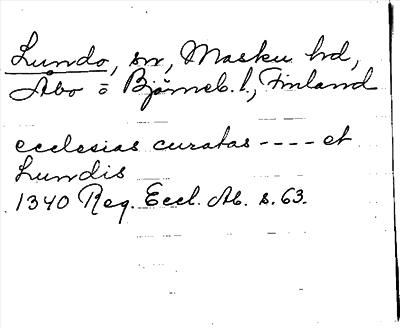 Lundo, sn, Masku hd,
Åbo o Björneb. l., Finland
ecclesias curatas ---- et
Lundis
1340 Reg. Eccl. Ab. s. 63.